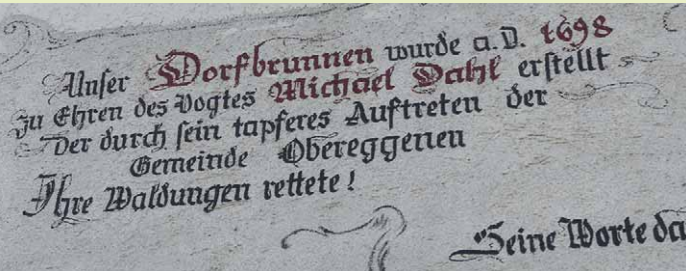 Unser Dorfbrunnen wurde a.D. 1698
zu Ehren des Vogtes Michael Dahl erstellt
Der durch sein tapferes Auftreten der
Gemeinde Obereggenen
Ihre Waldungen rettete!
Seine Worte da